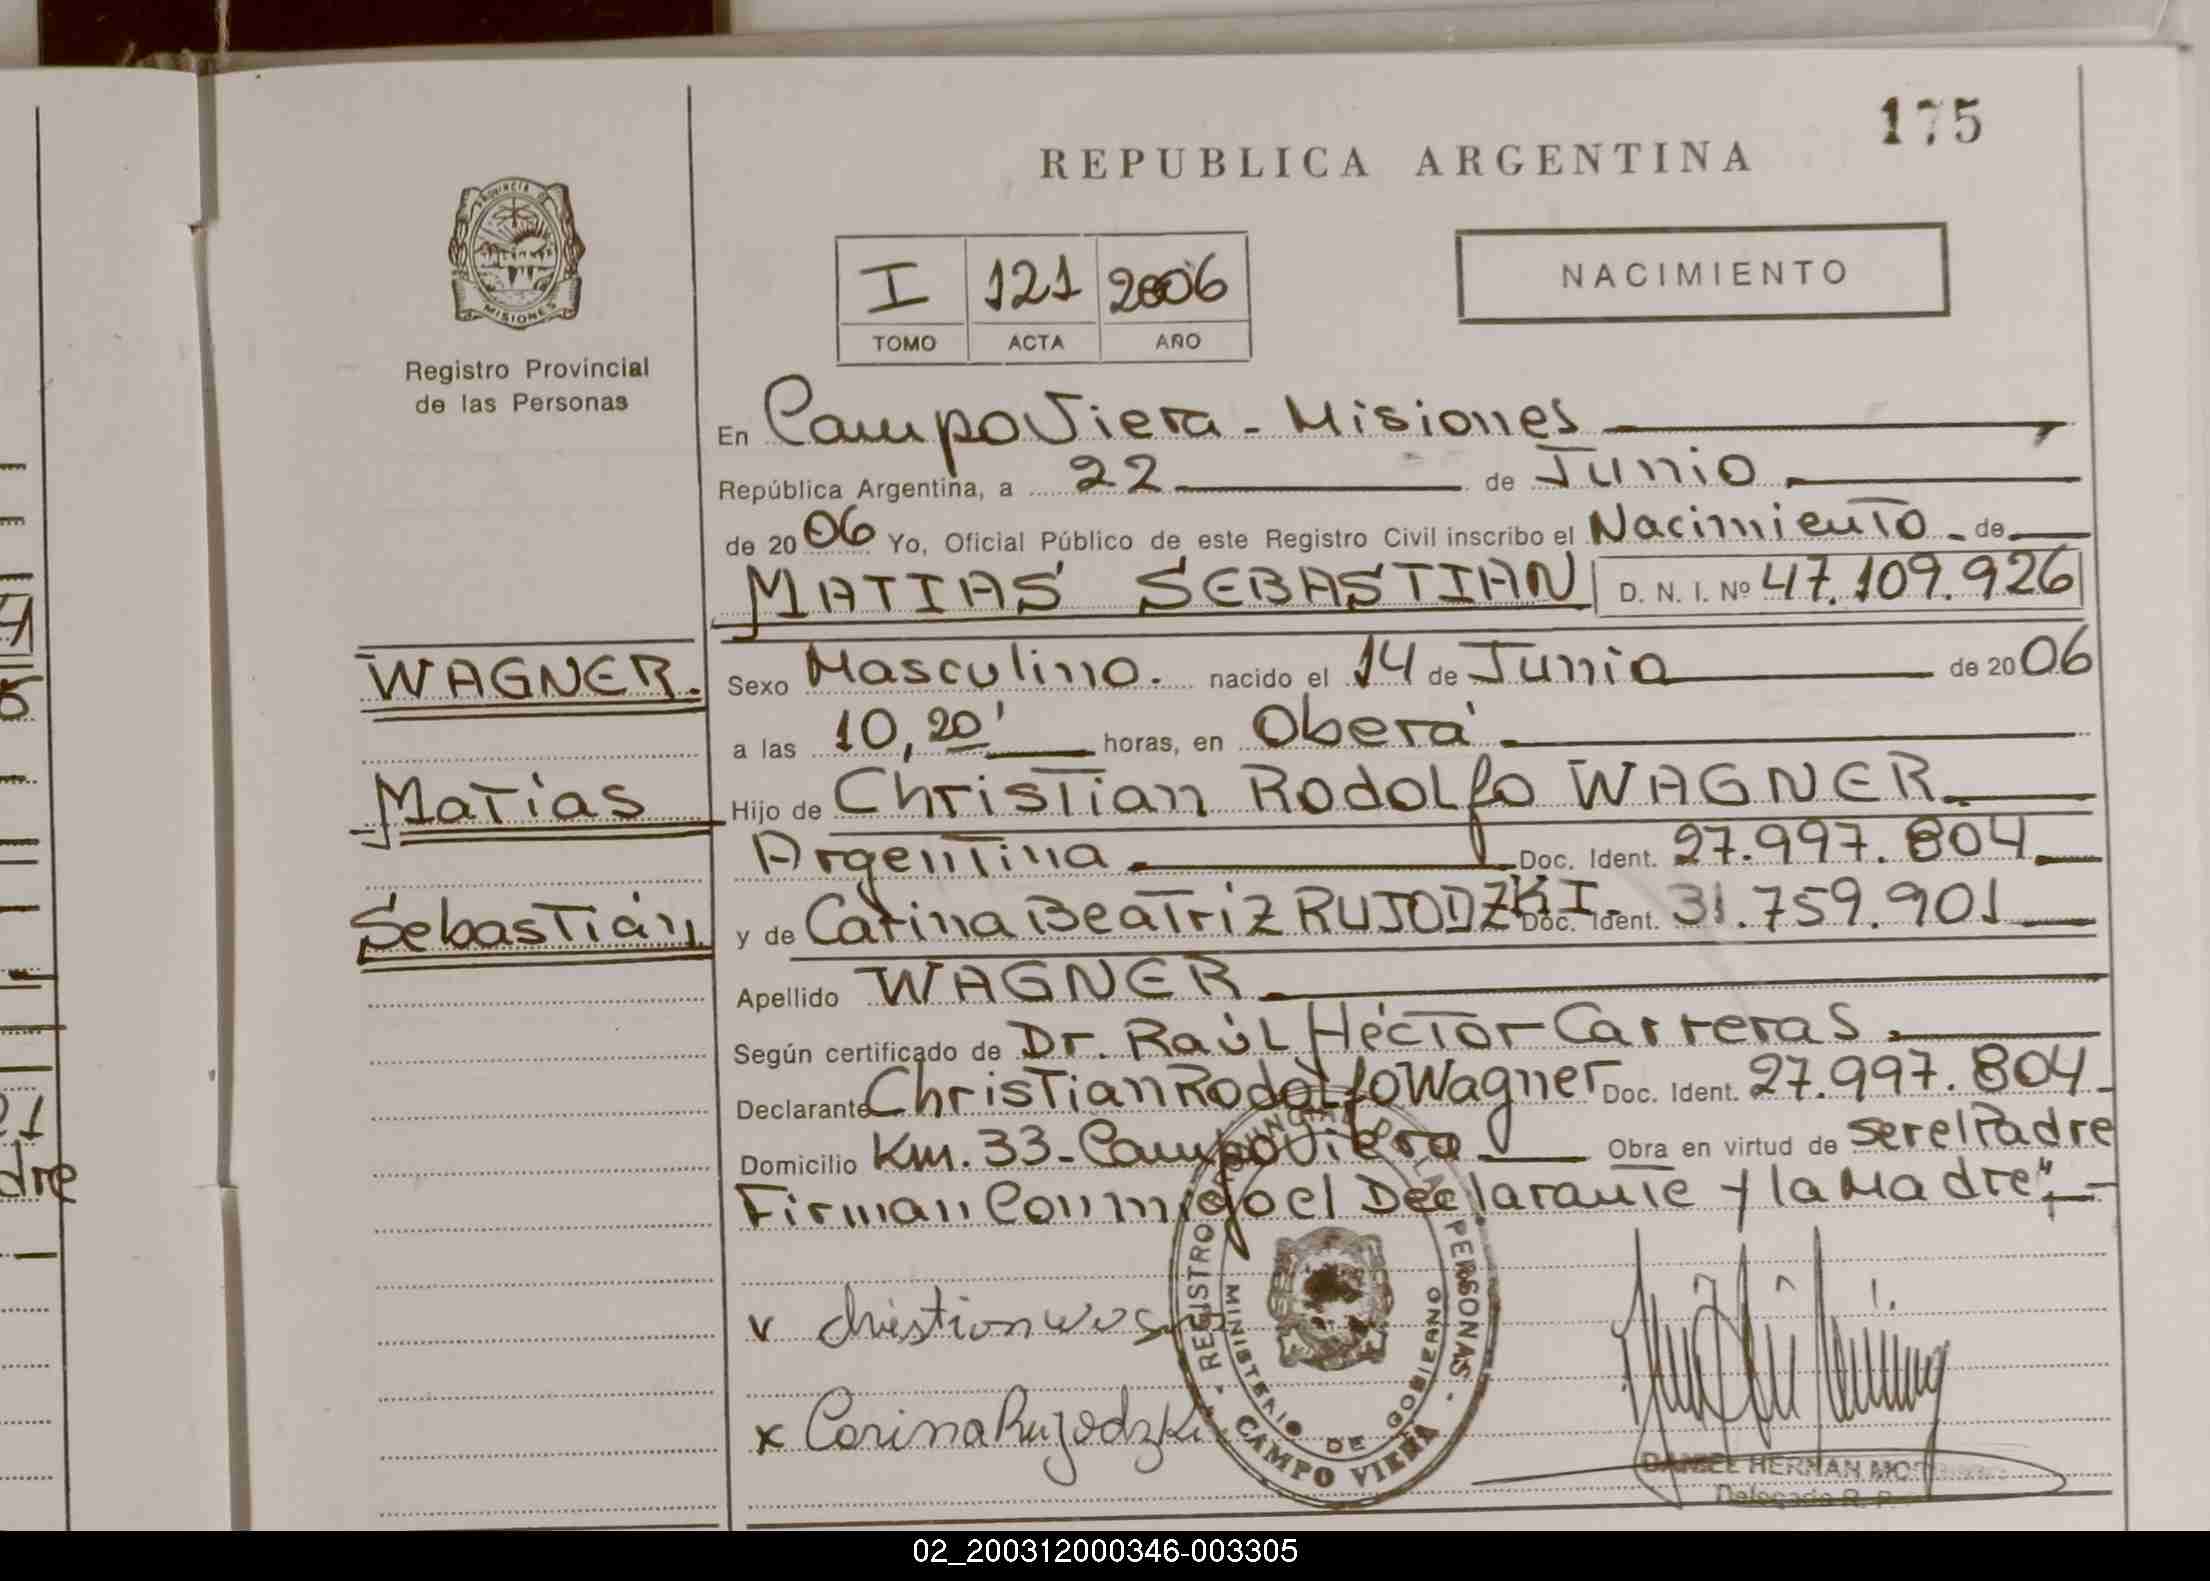 175
REPUBLICA ARGENTINA
NACIMIENTO
PROVINCIA DE
MISIONES
Registro Provincial
de las Personas
I 121 2006
TOMO ACTA AÑO
En Campo Viera - Misiones
República Argentina, a 22 de Junio
de 2006 Yo, Oficial Público de este Registro Civil inscribo el Nacimiento - de
MATIAS SEBASTIAN D. N. I. Nº 47.109.926
WAGNER.
Sexo Masculino. nacido el 14 de Junio de 2006
a las 10,20' horas, en Oberá
Matias
Hijo de Christian Rodolfo WAGNER
Argentina Doc. Ident. 27.997.804
Sebastián
y de Carina Beatriz RUJODZKI - Doc. Ident. 31.759.901
Apellido WAGNER
Según certificado de Dr. Raúl Héctor Carreras
Declarante Christian Rodolfo Wagner Doc. Ident. 27.997.804
Domicilio Km. 33 - Campo Viera Obra en virtud de ser el Padre
Firman Conmigo el Declarante y la Madre"
v Christian
x Carina Rujodzki
REGISTRO PERSONAS
MINISTERIO DE GOBIERNO
CAMPO VIERA
DANIEL HERNAN
Delegado R. P.
21
dre
02_200312000346-003305